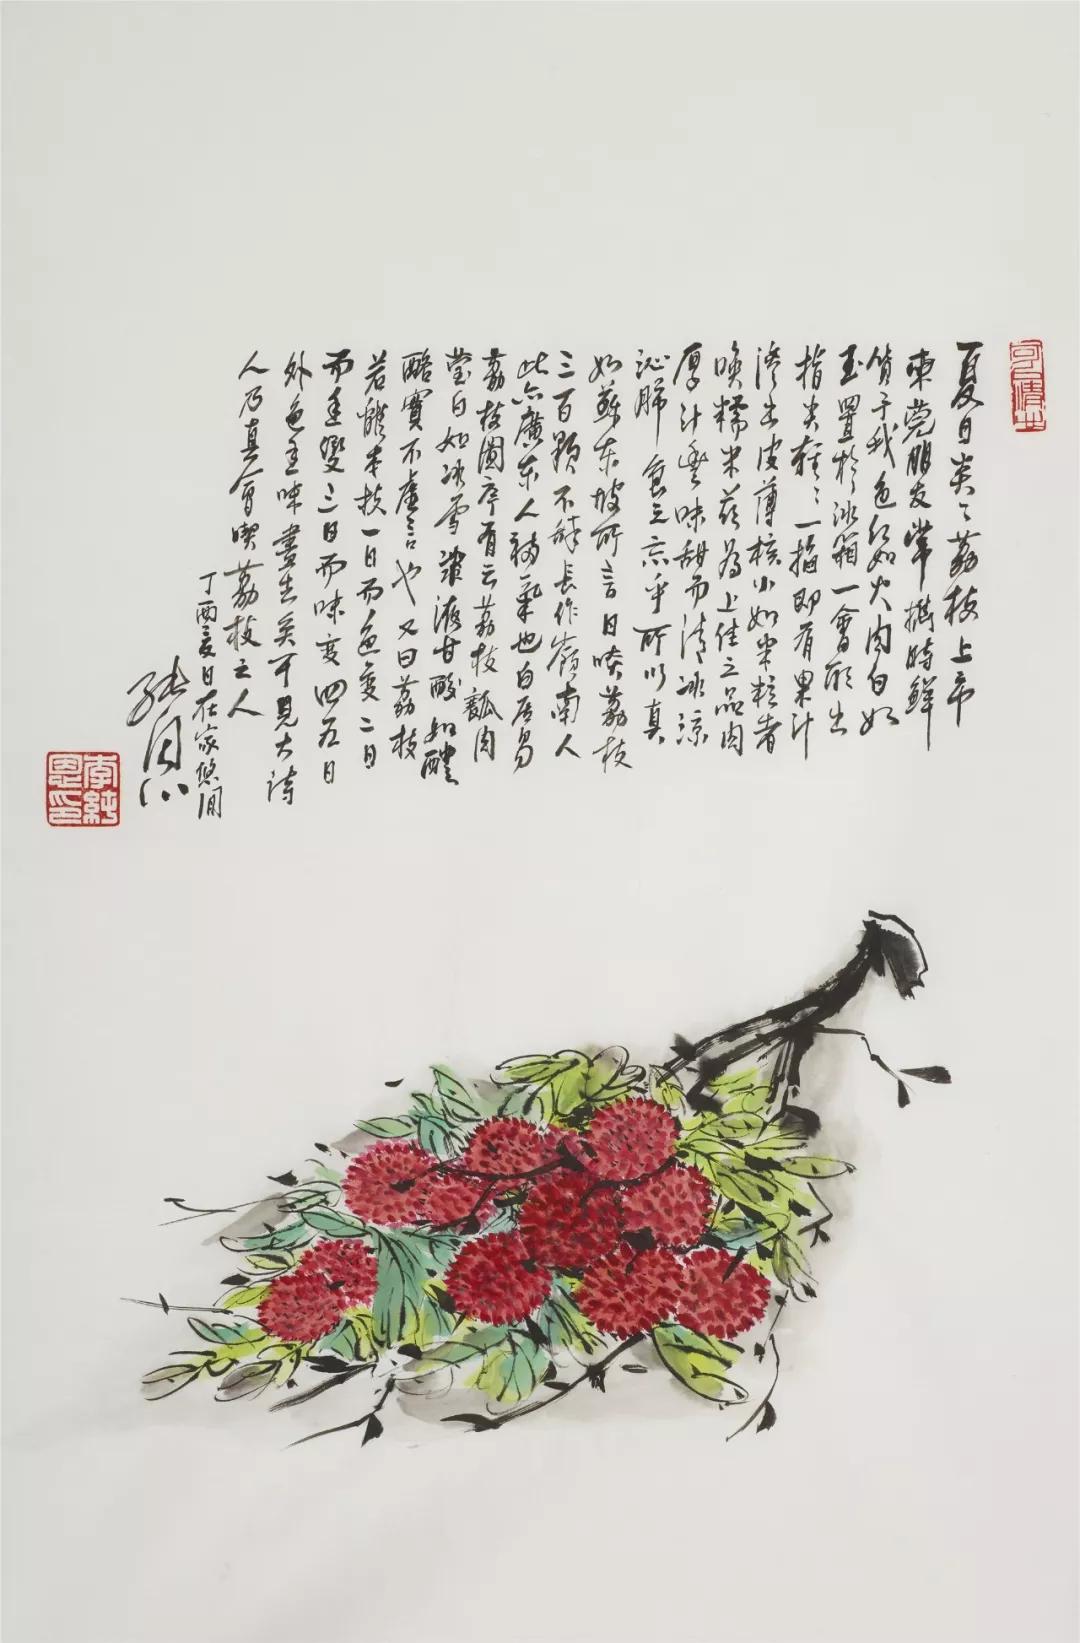 夏日炎炎荔枝上市
東莞朋友常携時鲜
馈于我色红如火肉白如
玉置於冰箱一會取出
指尖轻轻一掐即有果汁
渗出皮薄核小如米粒者
唤糯米茲為上佳之品肉
厚汁豐味甜而清冰凉
沁脾食之忘乎所以真
如蘇东坡所言日啖荔枝
三百颗不辞长作嶺南人
此亦廣东人福氣也白居易
荔枝圖序有云荔枝瓤肉
莹白如冰雪漿液甘酸如醴
酪實不虚言也又曰荔枝
若離本枝一日而色變二日
而香變三日而味變四五日
外色香味盡去矣可見大诗
人乃真會喫荔枝之人
丁酉夏日在家悠閒
李純恩印